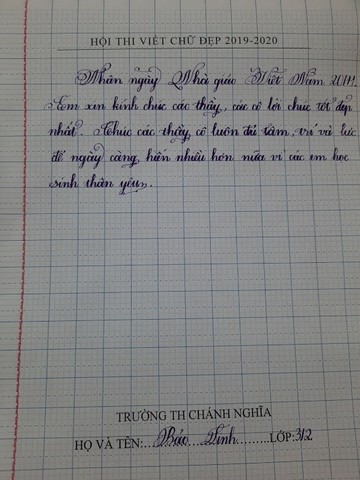 HỘI THI VIẾT CHỮ ĐẸP 2019-2020
Nhân ngày Nhà giáo Việt Nam 20/11.
Em xin kính chúc các thầy, các cô lời chúc tốt đẹp
nhất. Chúc các thầy, cô luôn đủ tâm, trí và lực
để ngày càng, hiến nhiều hơn nữa vì các em học
sinh thân yêu.
TRƯỜNG TH CHÁNH NGHĨA
HỌ VÀ TÊN:... Bảo ...........LỚP:3/2